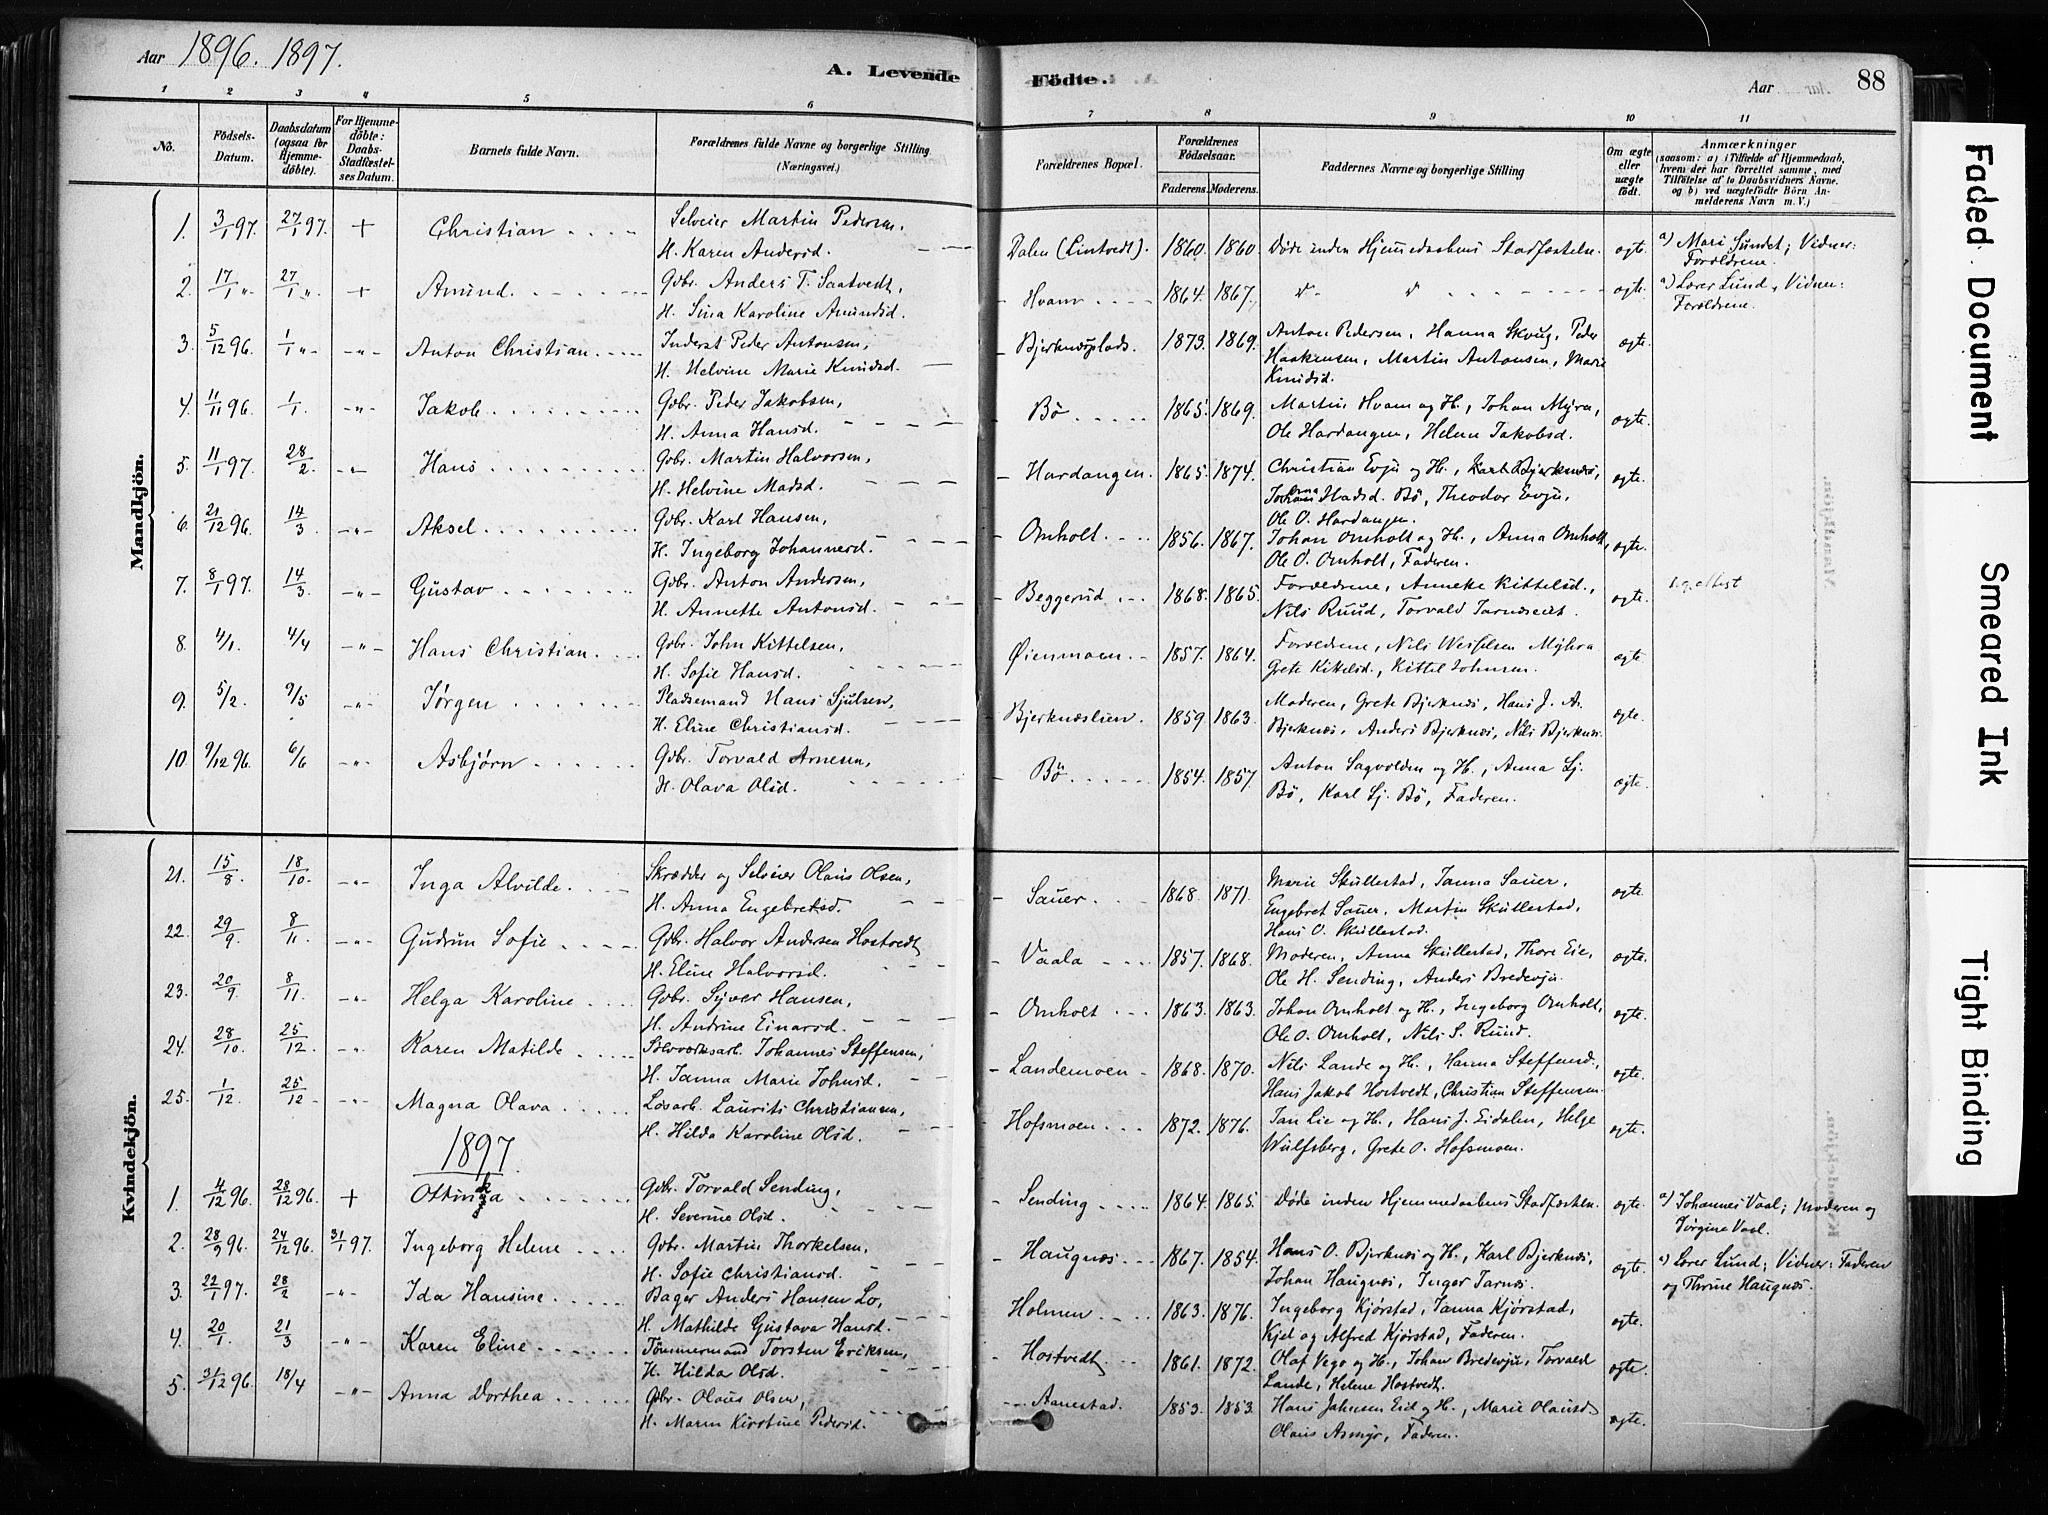 Aar 1896. 1897.
A. Levende
Födte.
Aar
88
1 2 3 4 5 6 7 8 9 10 11
No.
Födsels-
Datum.
Daabsdatum
(ogsaa for
Hjemme-
döbte).
For Hjemme-
döbte:
Daabs-
Stadfæstel-
ses Datum.
Barnets fulde Navn.
Forældrenes fulde Navne og borgerlige Stilling
(Næringsvei).
Forældrenes Bopæl.
Forældrenes
Födselsaar.
Faderens. Moderens.
Faddernes Navne og borgerlige Stilling
Om ægte
eller
uægte
födt.
Anmærkninger
(saasom: a) i Tilfælde af Hjemmedaab,
hvem der har forrettet samme, med
Tilföielse af to Daabsvidners Navne.
og b) ved uægtefödte Börn An-
melderens Navn m. V.)
Mandkjön.
1. 3/1 97. 27/1 97. + Christian Selveier Martin Pedersen, Dalen (Lintvedt). 1860. 1860. Døde inden Hjemmedaabens Stadfæstelse. ægte. a) Mari Sundet; Vidner:
H. Karen Andersd. Forældrene.
2. 17/1 " 27/1 " + Amund. Gdbr. Anders T. Saatvedt, Hvam 1864. 1867. ægte. a) Lærer Lund, Vidner:
H. Sina Karoline Amundsd. Forældrene.
3. 5/12 96. 1/1 " -"- Anton Christian. Inderst Peder Antonsen, Bjerknæsplads. 1873. 1869. Anton Pedersen, Hanna Skoug, Peder ægte.
H. Helvine Marie Knudsd. Haakensen, Martin Antonsen, Marie
Knudsd.
4. 11/11 96. 1/1. -"- Jakob. Gdbr. Peder Jakobsen, Bö 1865. 1869. Martin Hvam og H., Johan Myra, ægte.
H. Anna Hansd. Ole Hardangen, Helene Jakobsd.
5. 11/1 97. 28/2. -"- Hans Gdbr. Martin Halvorsen, Hardangen. 1865. 1874. Christian Evju og H., Karl Bjerknæs, ægte.
H. Helvine Madsd. Madsd. Bö, Theodor Evju,
Ole O. Hardangen.
6. 21/12 96. 14/3 -"- Aksel Gdbr. Karl Hansen, Omholt. 1856. 1867. Johan Omholt og H., Anna Omholt, ægte.
H. Ingeborg Johannesd. Ole O. Omholt, Faderen.
7. 8/1 97. 14/3. -"- Gustav Gdbr. Anton Andersen, Beggerud 1868. 1865. Forældrene, Anneke Kittelsd., ægte.
H. Annette Antonsd. Nils Ruud, Torvald
8. 4/1. 4/4 -"- Hans Christian. Gdbr. John Kittelsen, Øienmoen. 1857. 1864. Forældrene, Nils Myhra ægte.
H. Sofie Hansd. Grete Kittelsd., Kittel Johnsen.
9. 5/2. 9/5 -"- Jørgen Pladsemand Hans Sjulsen, Bjerknæslien. 1859 1863. Moderen, Grete Bjerknæs, Hans J. A. ægte.
H. Eline Christiansd. Bjerknæs, Anders Bjerknæs, Nils Bjerknæs.
10. 9/12 96. 6/6 -"- Asbjørn Gdbr. Torvald Arnesen, Bö. 1854. 1857. Anton Sagvolden og H., Anna Sj. ægte.
H. Olava Olsd. Bö, Karl Sj. Bö, Faderen.
Kvindekjön.
21. 15/8 18/10. -"- Inga Alvilde. Skrædder og Selveier Olaus Olsen, Sauer. 1868 1871. Marie Skullestad, Janna Sauer, ægte.
H. Anna Engebretsd. Engebret Sauer, Martin Skullestad,
Hans O. Skullestad.
22. 29/9. 8/11. -"- Gudrun Sofie Gdbr. Halvor Andersen Hostvedt, Vaala 1857. 1868. Moderen, Anna Skullestad, Thore Eie, ægte.
H. Eline Halvorsd. Ole H. Sending, Anders Bredevju.
23. 20/9. 8/11. -"- Helga Karoline Gdbr. Syver Hansen, Omholt 1863. 1863. Johan Omholt og H., Ingeborg Omholt, ægte.
H. Andrine Einarsd. Ole O. Omholt, Nils S. Ruud.
24. 28/10. 25/12. -"- Karen Matilde Sølvværksarb. Johannes Steffensen, Landemoen 1868. 1870. Nils Lande og H., Hanna Steffensd. ægte.
H. Janna Marie Johnsd. Hans Jakob Hostvedt, Christian Steffensen
25. 1/12. 25/12. -"- Magna Olava Løsarb. Laurits Christiansen, Hofsmoen. 1872. 1876. Jan Lie og H., Hans J. Eidalen, Helge ægte.
H. Hilda Karoline Olsd. Wulfsberg, Grete O. Hofsmoen.
1897
1. 4/12 96. 28/12 96. + Gdbr. Torvald Sending, Sending 1864. 1865. Døde inden Hjemmedaabens Stadfæstelse. ægte. a) Johannes Vaal; Moderen og
H. Severine Olsd. Jørgine Vaal.
2. 28/9 96. 24/12 96. 31/1 97. Ingeborg Helene Gdbr. Martin Thorkelsen, Haugnæs 1867. 1854. Hans O. Bjerknæs og H., Karl Bjerknæs, ægte. a) Lærer Lund; Vidner: Faderen
H. Sofie Christiansd. Johan Haugnæs, Inger Jarnæs. og Thrine Haugnæs.
3. 22/1 97. 28/2 -"- Ida Hansine Bager Anders Hansen Lo, Holmen 1863. 1876. Ingeborg Kjørstad, Janna Kjørstad, ægte.
H. Mathilde Gustava Hansd. Kjel og Alfred Kjørstad, Faderen.
4. 20/1. 21/3 -"- Karen Eline Tømmermand Torsten Eriksen, Hostvedt 1861. 1872. Olaf Vego og H., Johan Bredevju, Torvald ægte.
H. Hilda Olsd. Lande, Helene Hostvedt.
5. 31/12 96. 18/4 -"- Anna Dorthea Gdbr. Olaus Olsen, Aanestad. 1853. 1853. Hans Jahnsen Eid og H., Marie Olausd. ægte.
H. Maren Kirstine Pedersd. Olaus Asmyr, Faderen.
Faded Document
Smeared Ink
Tight Binding